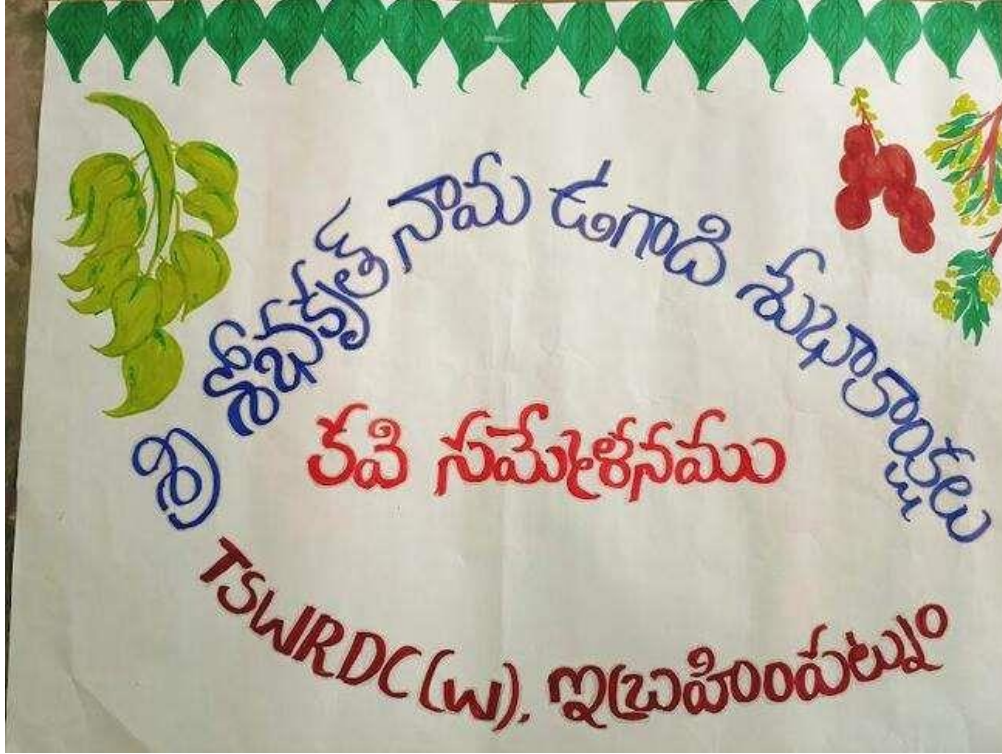 శ్రీ శోభకృత్ నామ ఉగాది శుభాకాంక్షలు
కవి సమ్మేళనము
TSWRDC(W), ఇబ్రహింపట్నం